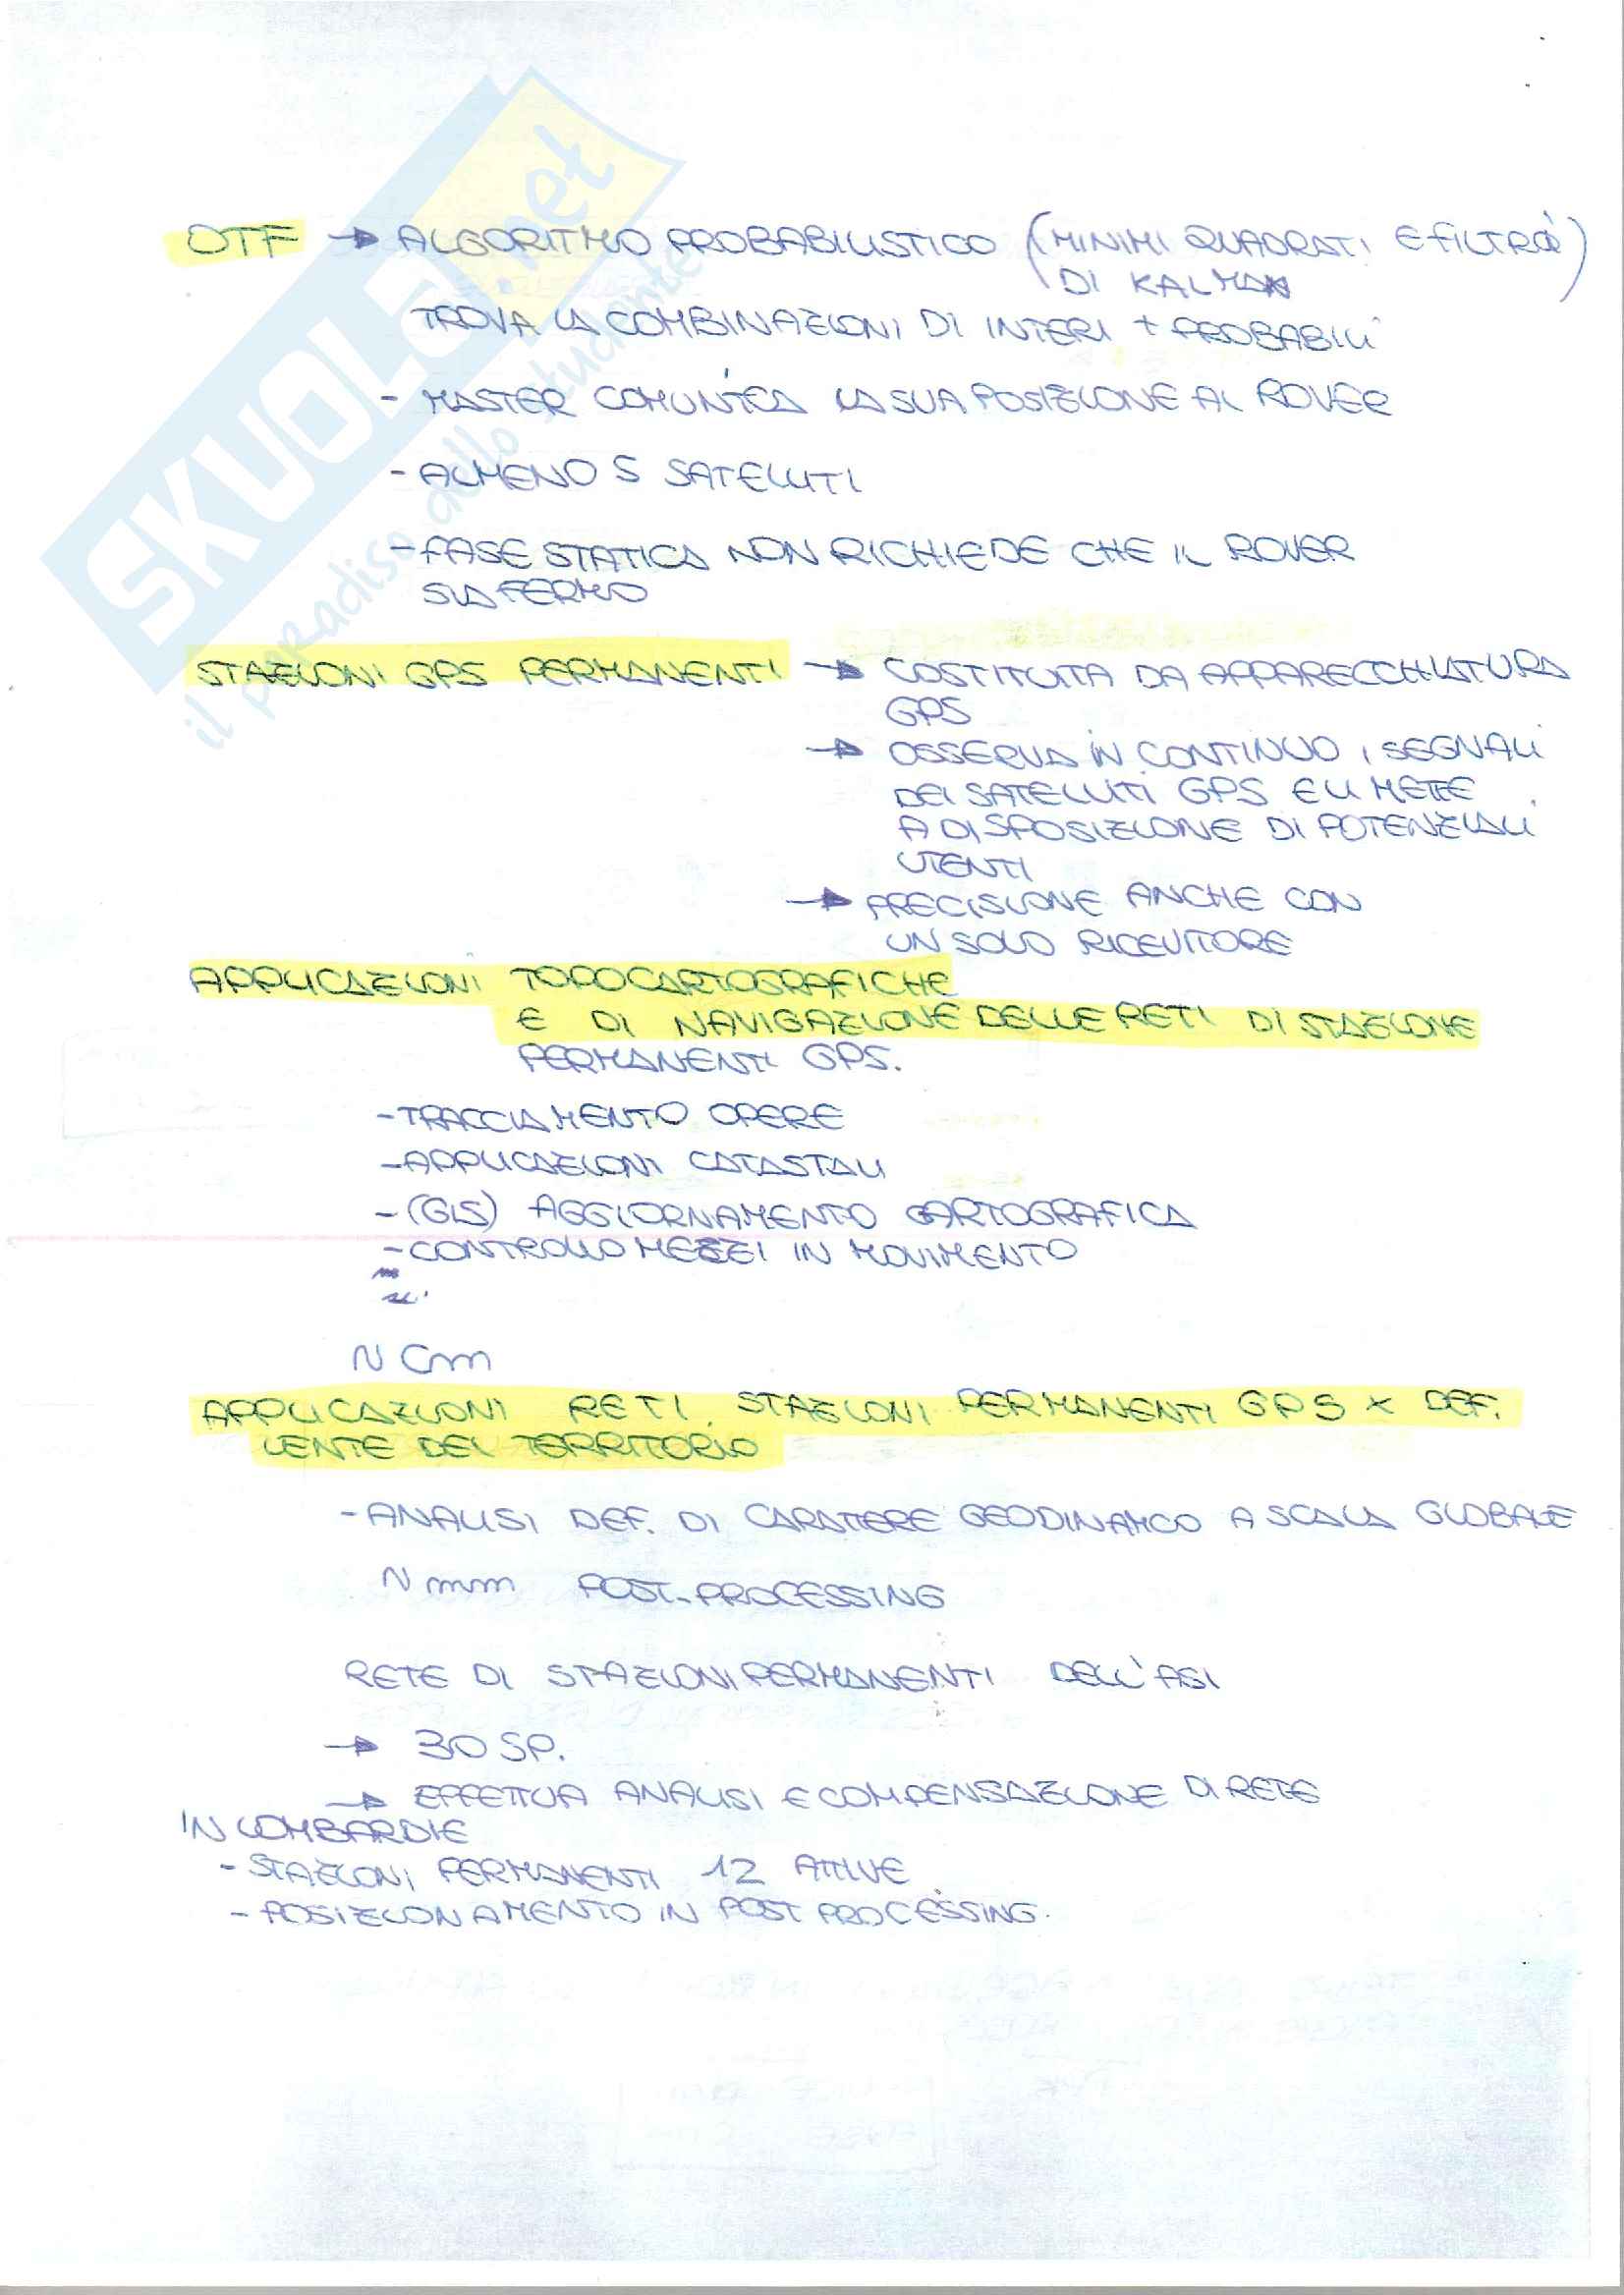 SKUOLA.net
il paradiso dello studente
OTF → ALGORITMO PROBABILISTICO (MINIMI QUADRATI E FILTRO
DI KALMAN)
TROVA LA COMBINAZIONI DI INTERI + PROBABILI
- MASTER COMUNICA LA SUA POSIZIONE AL ROVER
- ALMENO 5 SATELLITI
- FASE STATICA NON RICHIEDE CHE IL ROVER
SIA FERMO
STAZIONI GPS PERMANENTI → COSTITUITA DA APPARECCHIATURA
GPS
→ OSSERVA IN CONTINUO I SEGNALI
DEI SATELLITI GPS E LI METTE
A DISPOSIZIONE DI POTENZIALI
UTENTI
→ PRECISIONE ANCHE CON
UN SOLO RICEVITORE
APPLICAZIONI TOPOCARTOGRAFICHE
E DI NAVIGAZIONE DELLE RETI DI STAZIONE
PERMANENTI GPS.
- TRACCIAMENTO OPERE
- APPLICAZIONI CATASTALI
- (GIS) AGGIORNAMENTO CARTOGRAFICA
- CONTROLLO MEZZI IN MOVIMENTO
N cm
APPLICAZIONI RETI STAZIONI PERMANENTI GPS X DEF.
LENTE DEL TERRITORIO
- ANALISI DEF. DI CARATTERE GEODINAMICO A SCALA GLOBALE
N mm POST-PROCESSING
RETE DI STAZIONI PERMANENTI DELL'ASI
→ 30 SP.
→ EFFETTUA ANALISI E COMPENSAZIONE DI RETE
IN LOMBARDIE
- STAZIONI PERMANENTI 12 ATTIVE
- POSIZIONAMENTO IN POST PROCESSING.